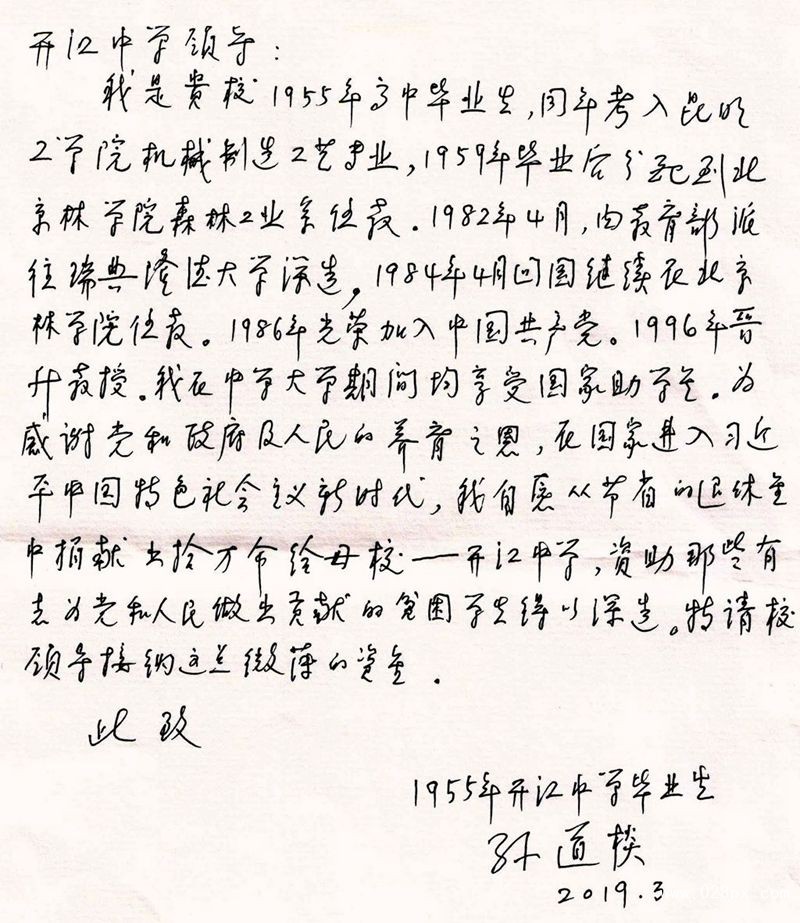 开江中学领导：
我是贵校1955年高中毕业生，同年考入昆明
工学院机械制造工艺专业，1959年毕业后分配到北
京林学院森林工业系任教。1982年4月，由教育部派
往瑞典隆德大学深造，1984年4月回国继续在北京
林学院任教。1986年光荣加入中国共产党。1996年晋
升教授。我在中学大学期间均享受国家助学金。为
感谢党和政府及人民的养育之恩，在国家进入习近
平中国特色社会主义新时代，我自愿从节省的退休金
中捐献出拾万币给母校——开江中学，资助那些有
志为党和人民做出贡献的贫困学生得以深造。特请校
领导接纳这点微薄的资金．
此致
1955年开江中学毕业生
孙道
2019.3